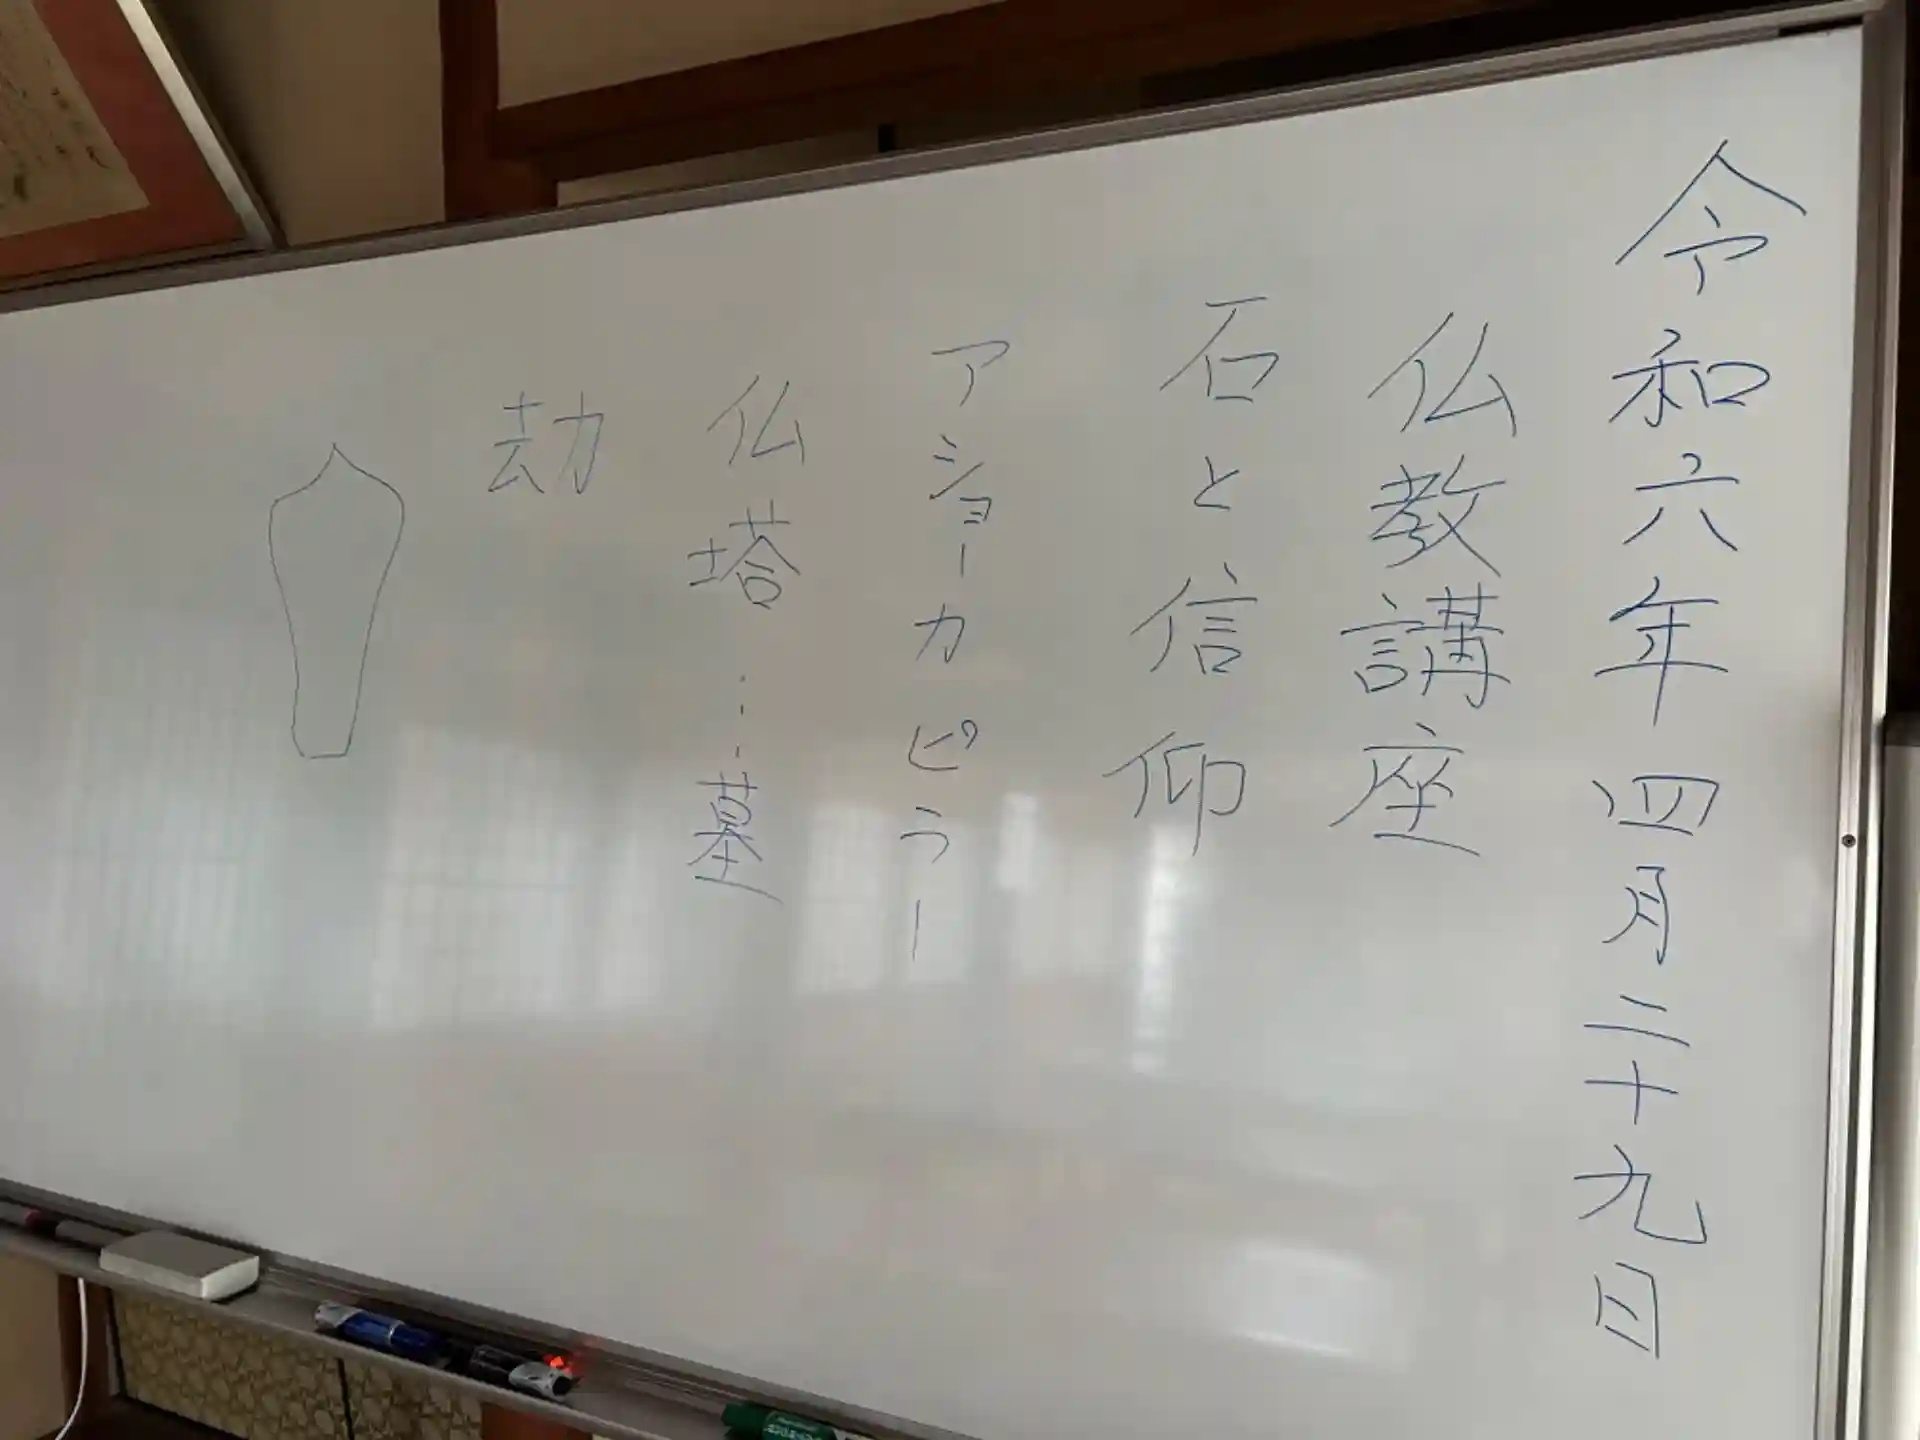 令和六年四月二十九日
仏教講座
石と信仰
アショーカピラー
仏塔…墓
劫